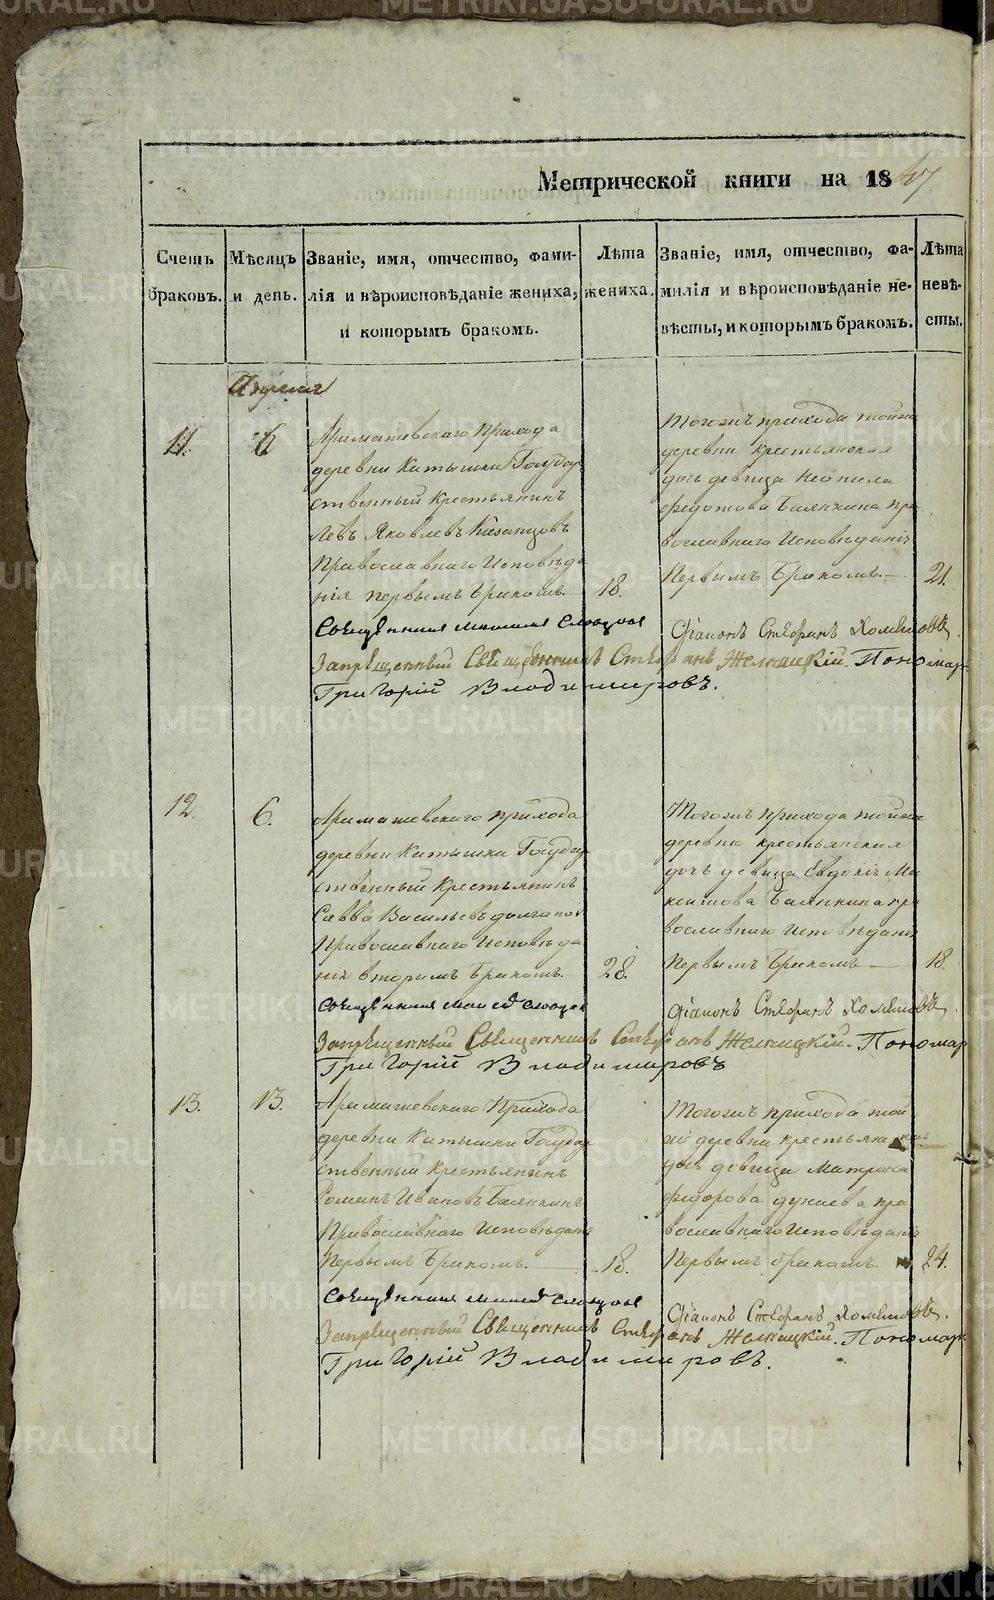 Метрической книги на 1847
Счетъ браковъ.
Мѣсяцъ и день.
Званіе, имя, отчество, фами-
лія и вѣроисповѣданіе жениха,
и которымъ бракомъ.
Лѣта жениха.
Званіе, имя, отчество, фа-
милія и вѣроисповѣданіе не-
вѣсты, и которымъ бракомъ.
Лѣта невѣ-
сты.
Апреля
11.
6
прихода
деревни Катышки Государ
ственный Крестьянинъ
Левъ Яковлевъ Казанцовъ
Православнаго Исповѣда
нія первымъ бракомъ.
18.
Тогожъ прихода тойже
деревни крестьянская
дочь девица Неонила
Федотова Балякина пра
вославнаго Исповѣданія
Первымъ Бракомъ.
21.
Діаконъ Стефанъ Хомяковъ.
Запрещенный Священникъ Стефанъ Пономарь
Григорій Владимировъ.
12.
6.
прихода
деревни Катышки Государ
ственный Крестьянинъ
Савва Васильевъ
Православнаго Исповѣда
нія вторымъ бракомъ.
28.
Тогожъ прихода тойже
деревни крестьянская
дочь девица Евдокія Ма
ксимова Балякина пра
вославнаго Исповѣданія
Первымъ Бракомъ
18.
Діаконъ Стефанъ Хомяковъ.
Запрещенный Священникъ Стефанъ Пономарь
Григорій Владимировъ
13.
13.
Прихода
деревни Катышки Государ
ственный Крестьянинъ
Романъ Ивановъ Балякинъ
Православнаго Исповѣданія
Первымъ Бракомъ.
18.
Тогожъ прихода той
же деревни крестьянская
дочь девица Матрона
Федорова Дунаева пра
вославнаго Исповѣданія
Первымъ бракомъ.
24.
Діаконъ Стефанъ Хомяковъ.
Запрещенный Священникъ Стефанъ Пономарь
Григорій Владимировъ.
METRIKI.GASO-URAL.RU